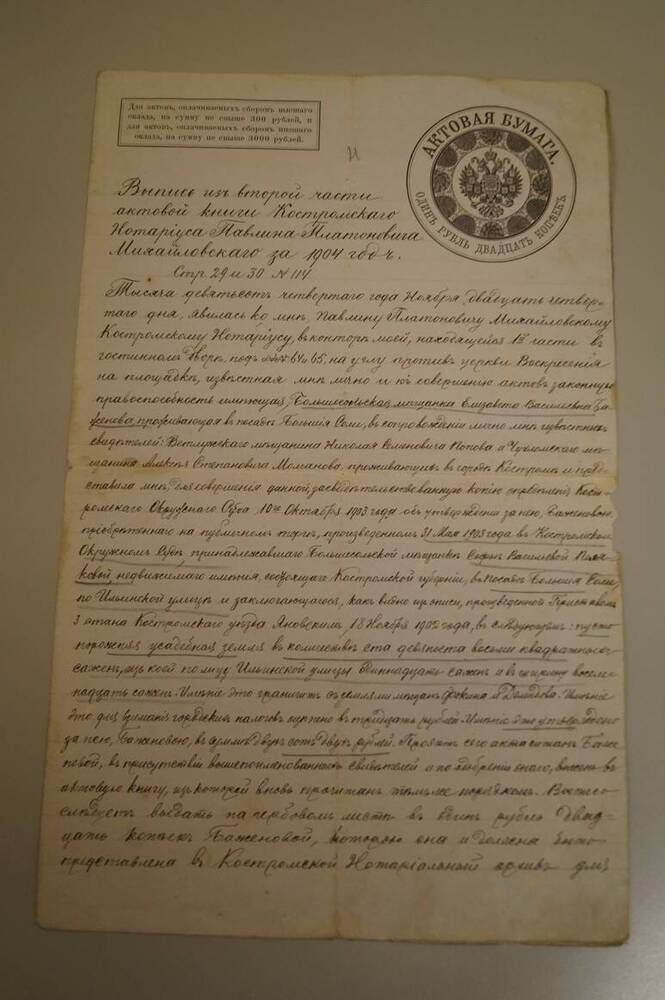 Для актовъ, оплачиваемыхъ сборомъ высшаго
оклада, на сумму не свыше 300 рублей, и
для актовъ, оплачиваемыхъ сборомъ низшаго
оклада, на сумму не свыше 3000 рублей.
АКТОВАЯ БУМАГА.
ОДИНЪ РУБЛЬ ДВАДЦАТЬ КОПѢЕКЪ
Выпись изъ второй части
актовой книги Костромскаго
Нотаріуса Павлина Платоновича
Михайловскаго за 1904 годъ.
Стр. 29 и 30 № 114
Тысяча девятьсотъ четвертаго года Ноября двадцать четвер-
таго дня, явилась ко мнѣ, Павлину Платоновичу Михайловскому
Костромскому Нотаріусу, въ контору мою, находящуюся 1й части въ
гостинномъ дворѣ, подъ №№ 64 и 65, на углу противъ церкви Воскресенія
на площадкѣ, извѣстная мнѣ лично и къ совершенію актовъ законную
правоспособность имѣющая, Большесольская мѣщанка Елизавета Васильевна Ба-
женова, проживающая въ посадѣ Большія Соли, въ сопровожденіи лично мнѣ извѣстныхъ
свидѣтелей: Ветлужскаго мѣщанина Николая Семеновича Попова и Чухломскаго мѣ-
щанина Алексѣя Степановича Моманова, проживающихъ въ городѣ Костромѣ и пред-
ставила мнѣ, для совершенія данной, засвидѣтельствованную копію опредѣленія Кост-
ромскаго Окружнаго Суда 10го Октября 1903 года объ утвержденіи за нею, Баженовою,
пріобрѣтеннаго на публичномъ торгѣ, произведенномъ 31 Мая 1903 года въ Костромскомъ
Окружномъ Судѣ принадлежавшаго Большесольской мѣщанкѣ Васильевой Поля-
ковой, недвижимаго имѣнія, состоящаго Костромской губерніи, въ посадѣ Большія Соли,
по Ильинской улицѣ и заключающагося, какъ видно изъ описи, произведенной Приставомъ
3 стана Костромскаго уѣзда Яновскимъ, 18 Ноября 1902 года, въ слѣдующемъ: пусто
порожняя усадебная земля въ количествѣ ста девяноста восьми квадратныхъ
сажень, изъ коей по лицу Ильинской улицы одиннадцать сажень и въ ширину восем-
надцать сажень. Имѣніе это граничитъ съ землями мѣщанъ и Имѣніе
это для взиманія городскихъ налоговъ оцѣнено въ тридцать рублей. Имѣніе это утверждено
за нею, Баженовою, въ суммѣ двухъ сотъ двухъ рублей. Проектъ сего акта читанъ Баже-
новой, въ присутствіи вышепоименованныхъ свидѣтелей и по одобреніи онаго, внесенъ въ
актовую книгу, изъ которой вновь прочитанъ тѣмъ же порядкомъ. Выпись
слѣдуетъ выдать на гербовомъ листѣ въ одинъ рубль двад-
цать копѣекъ Баженовой, которою она и должна быть
представлена въ Костромской Нотаріальный архивъ для